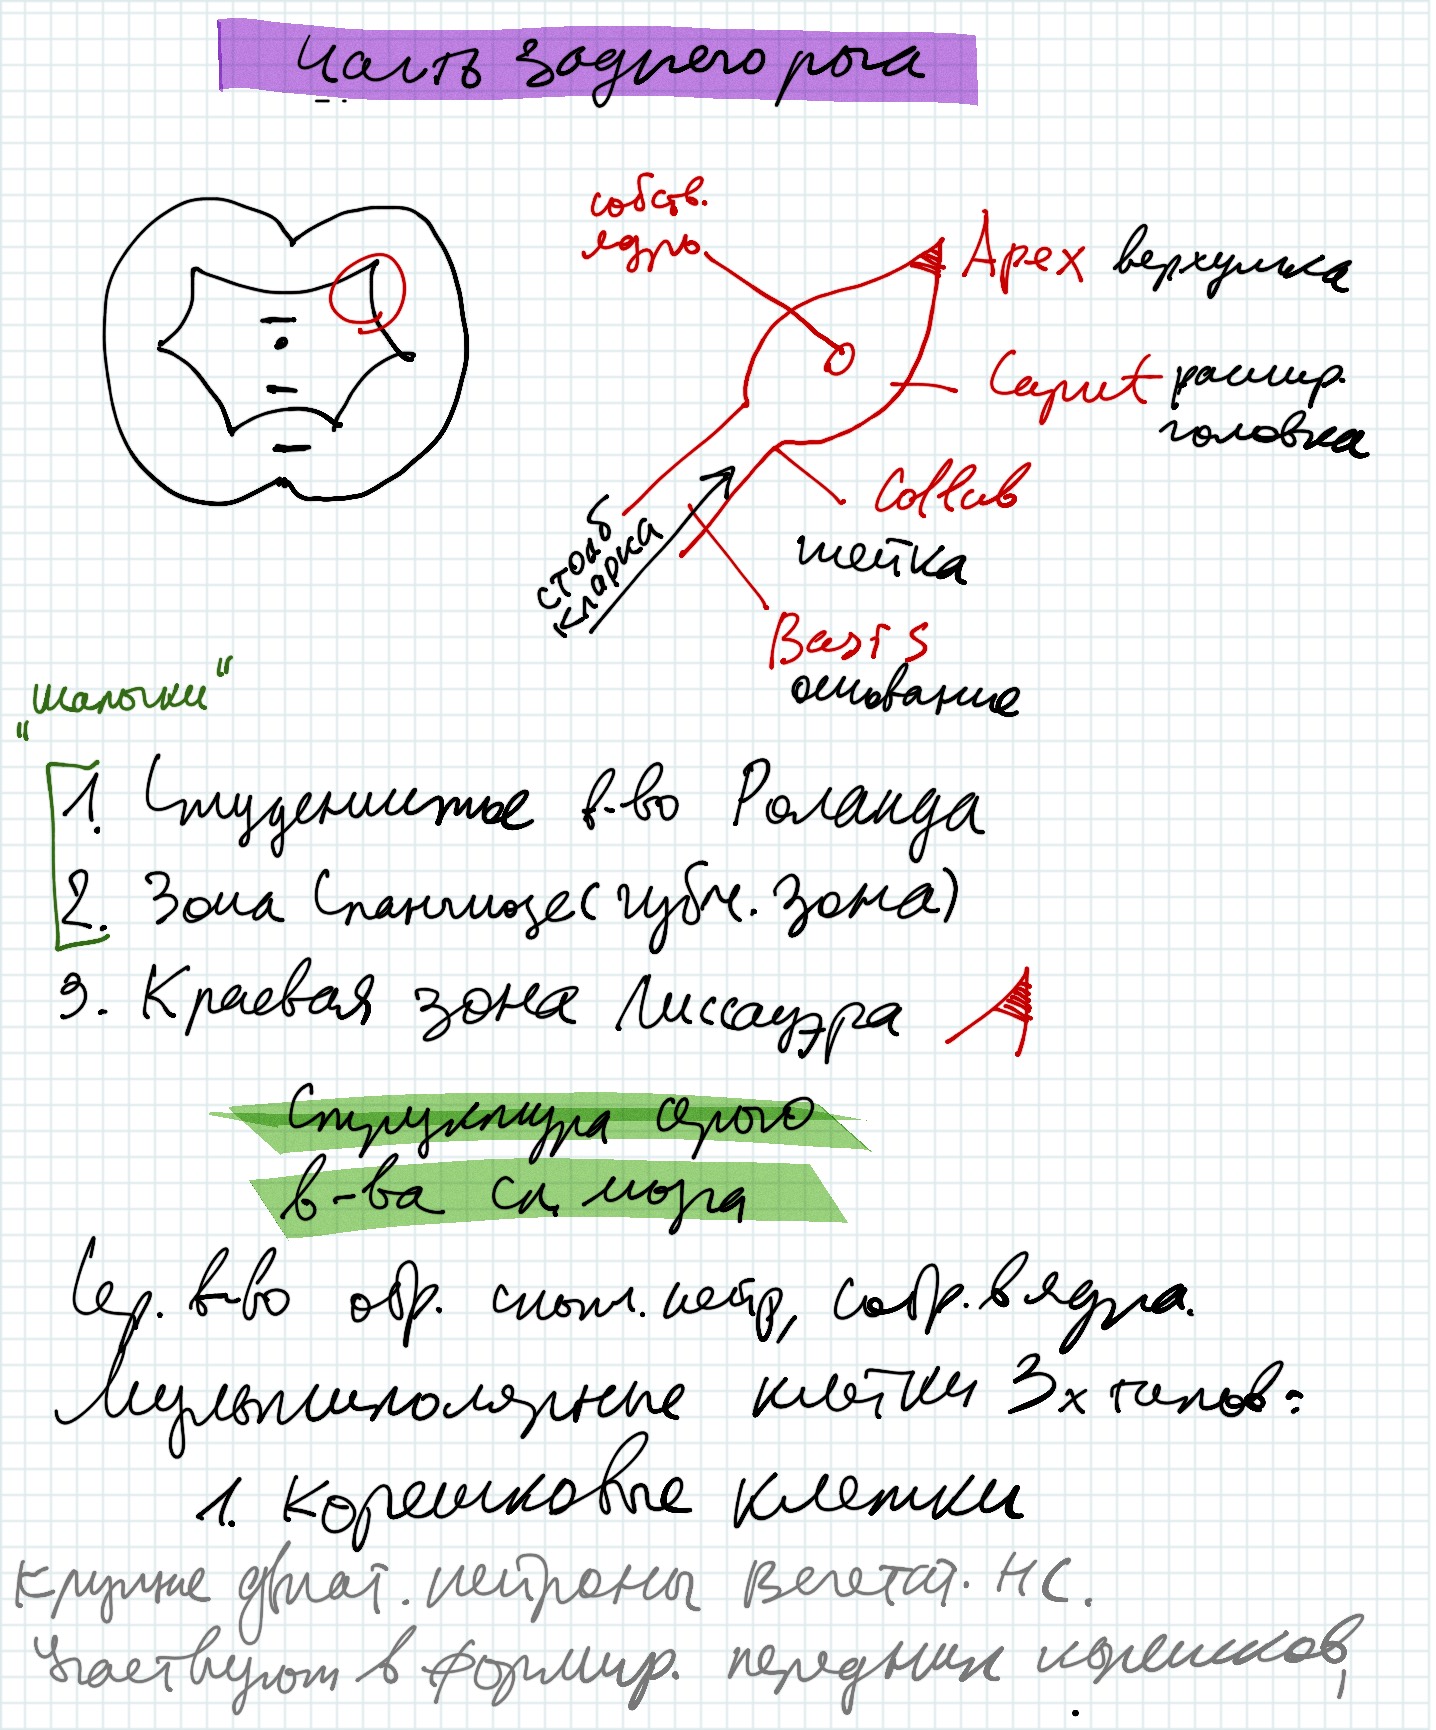 Часть заднего рога
собств.
ядро
Apex верхушка
Caput расшир.
головка
Collub
шейка
столб
Кларка
Basis
основание
"шапочки"
1. Студенистое в-во Роланда
2. Зона Спангиозе (губч. зона)
3. Краевая зона Лиссауэра
Структура серого
в-ва сп. мозга
Сер. в-во обр. скопл. нейр, собр. в ядра.
Мультиполярные клетки 3х типов:
1. Корешковые клетки
Крупные двигат. нейроны Вегетат. НС.
Участвуют в формир. передних корешков,